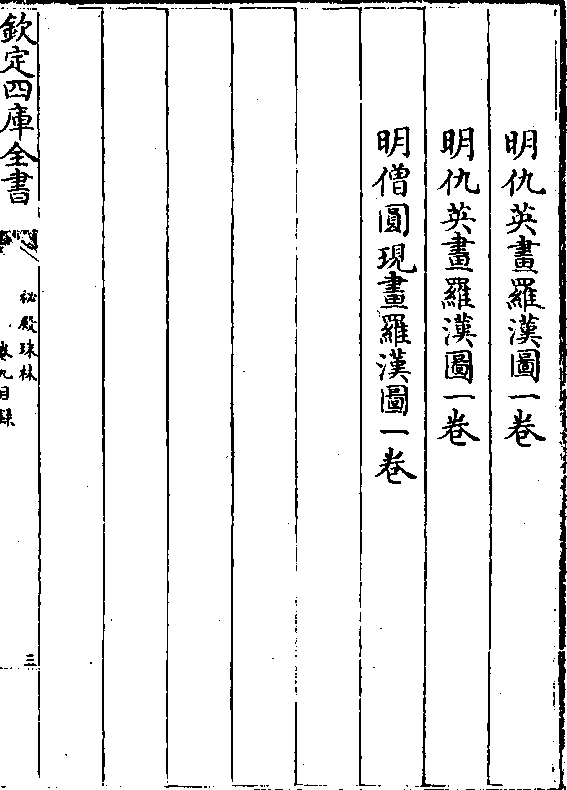 明仇英畫羅漢圖一卷
明仇英畫羅漢圖一卷
明僧圓現畫羅漢圖一卷
欽定四庫全書
秘殿珠林
卷九目錄
三